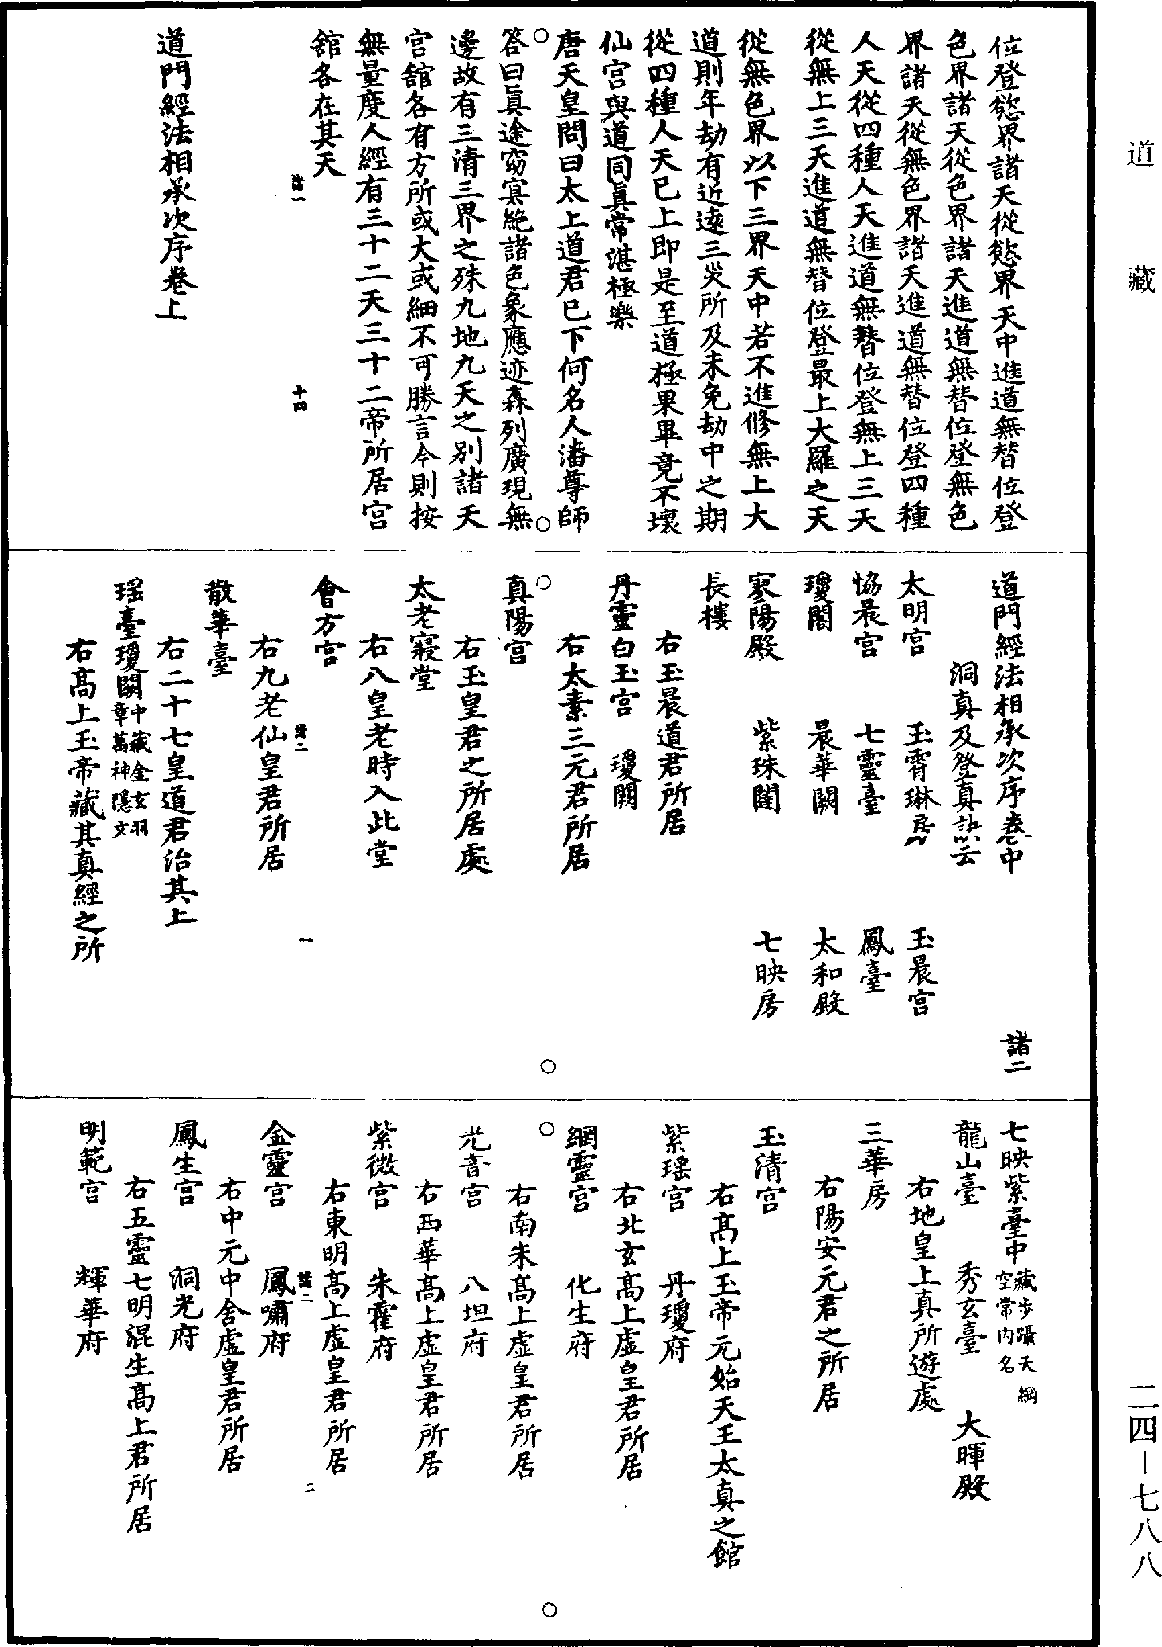 道藏
位登慾界諸天從慾界天中進道無替位登
色界諸天從色界諸天進道無替位登無色
界諸天從無色界諸天進道無替位登四種
人天從四種人天進道無替位登無上三天
從無上三天進道無替位登最上大羅之天
從無色界以下三界天中若不進修無上大
道則年劫有近遠三災所及未免劫中之期
從四種人天已上即是至道極果畢竟不壞
仙宮與道同真常湛極樂
唐天皇問曰太上道君已下何名人潘尊師
答曰真途窈冥絕諸色象應迹森列廣現無
邊故有三清三界之殊九地九天之別諸天
宮舘各有方所或大或細不可勝言今則按
無量度人經有三十二天三十二帝所居宮
舘各在其天
諸一 十四
道門經法相承次序卷上
道門經法相承次序卷中 諸二
洞真及登真訣云
太明宮 玉霄琳房 玉晨宮
協晨宮 七靈臺 鳳臺
瓊閣 晨華闕 太和殿
寥陽殿 紫珠閣 七映房
長樓
右玉晨道君所居
丹靈白玉宮 瓊闕
右太素三元君所居
真陽宮
右玉皇君之所居處
太老寢堂
右八皇老時入此堂
會方宮
諸二 一
右九老仙皇君所居
散華臺
右二十七皇道君治其上
瑤臺瓊闕中藏金玄羽章萬神隱文
右高上玉帝藏其真經之所
七映紫臺中藏步躡天綱空常內名
龍山臺 秀玄臺 大暉殿
右地皇上真所遊處
三華房
右陽安元君之所居
玉清宮
右高上玉帝元始天王太真之館
紫瑤宮 丹瓊府
右北玄高上虛皇君所居
網靈宮 化生府
右南朱高上虛皇君所居
光音宮 八坦府
右西華高上虛皇君所居
紫微宮 朱霍府
右東明高上虛皇君所居
諸二 二
金靈宮 鳳嘯府
右中元中舍虛皇君所居
鳳生宮 洞光府
右五靈七明混生高上君所居
明範宮 輝華府
二四—七八八